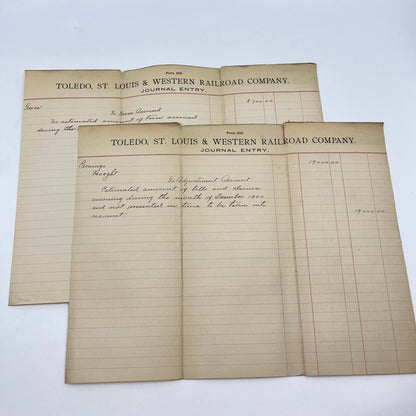 TOLEDO, ST. LOUIS & WESTERN RAILROAD COMPANY.
JOURNAL ENTRY.
8,700.00
To Taxes Accrued
To estimated amount of taxes accrued
during the
TOLEDO, ST. LOUIS & WESTERN RAILROAD COMPANY.
JOURNAL ENTRY.
Earnings 19,000.00
Freight
To Adjustment Account 19,000.00
Estimated amount of bills and claims
accruing during the month of December
and not presented in time to be taken into
account